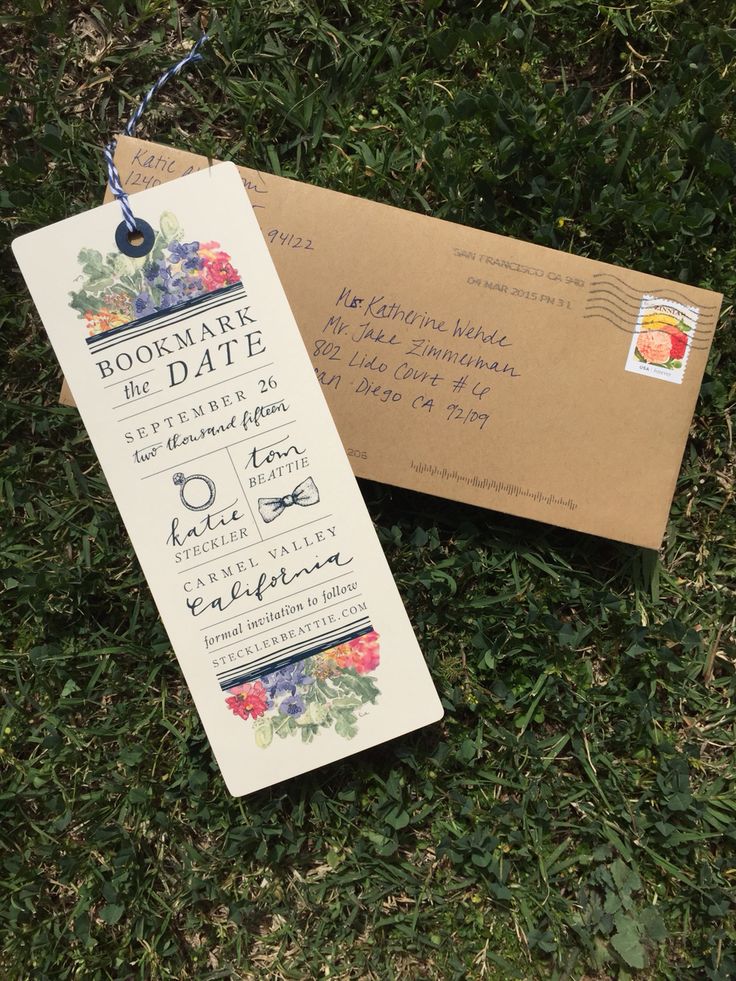 BOOKMARK
the DATE
SEPTEMBER 26
two thousand fifteen
katie
STECKLER
tom
BEATTIE
CARMEL VALLEY
California
formal invitation to follow
STECKLERBEATTIE.COM
Katie
1240
94122
SAN FRANCISCO CA 940
04 MAR 2015 PM 3 L
Ms. Katherine Wehde
Mr. Jake Zimmerman
802 Lido Court # 6
San Diego CA 92109
USA FOREVER